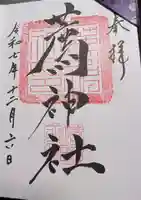 奉拝
神社
令和七年十二月六日